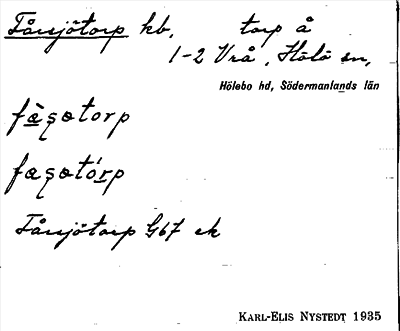 Fårsjötorp kb, torp å
1-2 Vrå, Hölö sn,
Hölebo hd, Södermanlands län
fàșɵtorp
fașɵtórp
Fårsjötorp G67 ek
KARL-ELIS NYSTEDT 1935